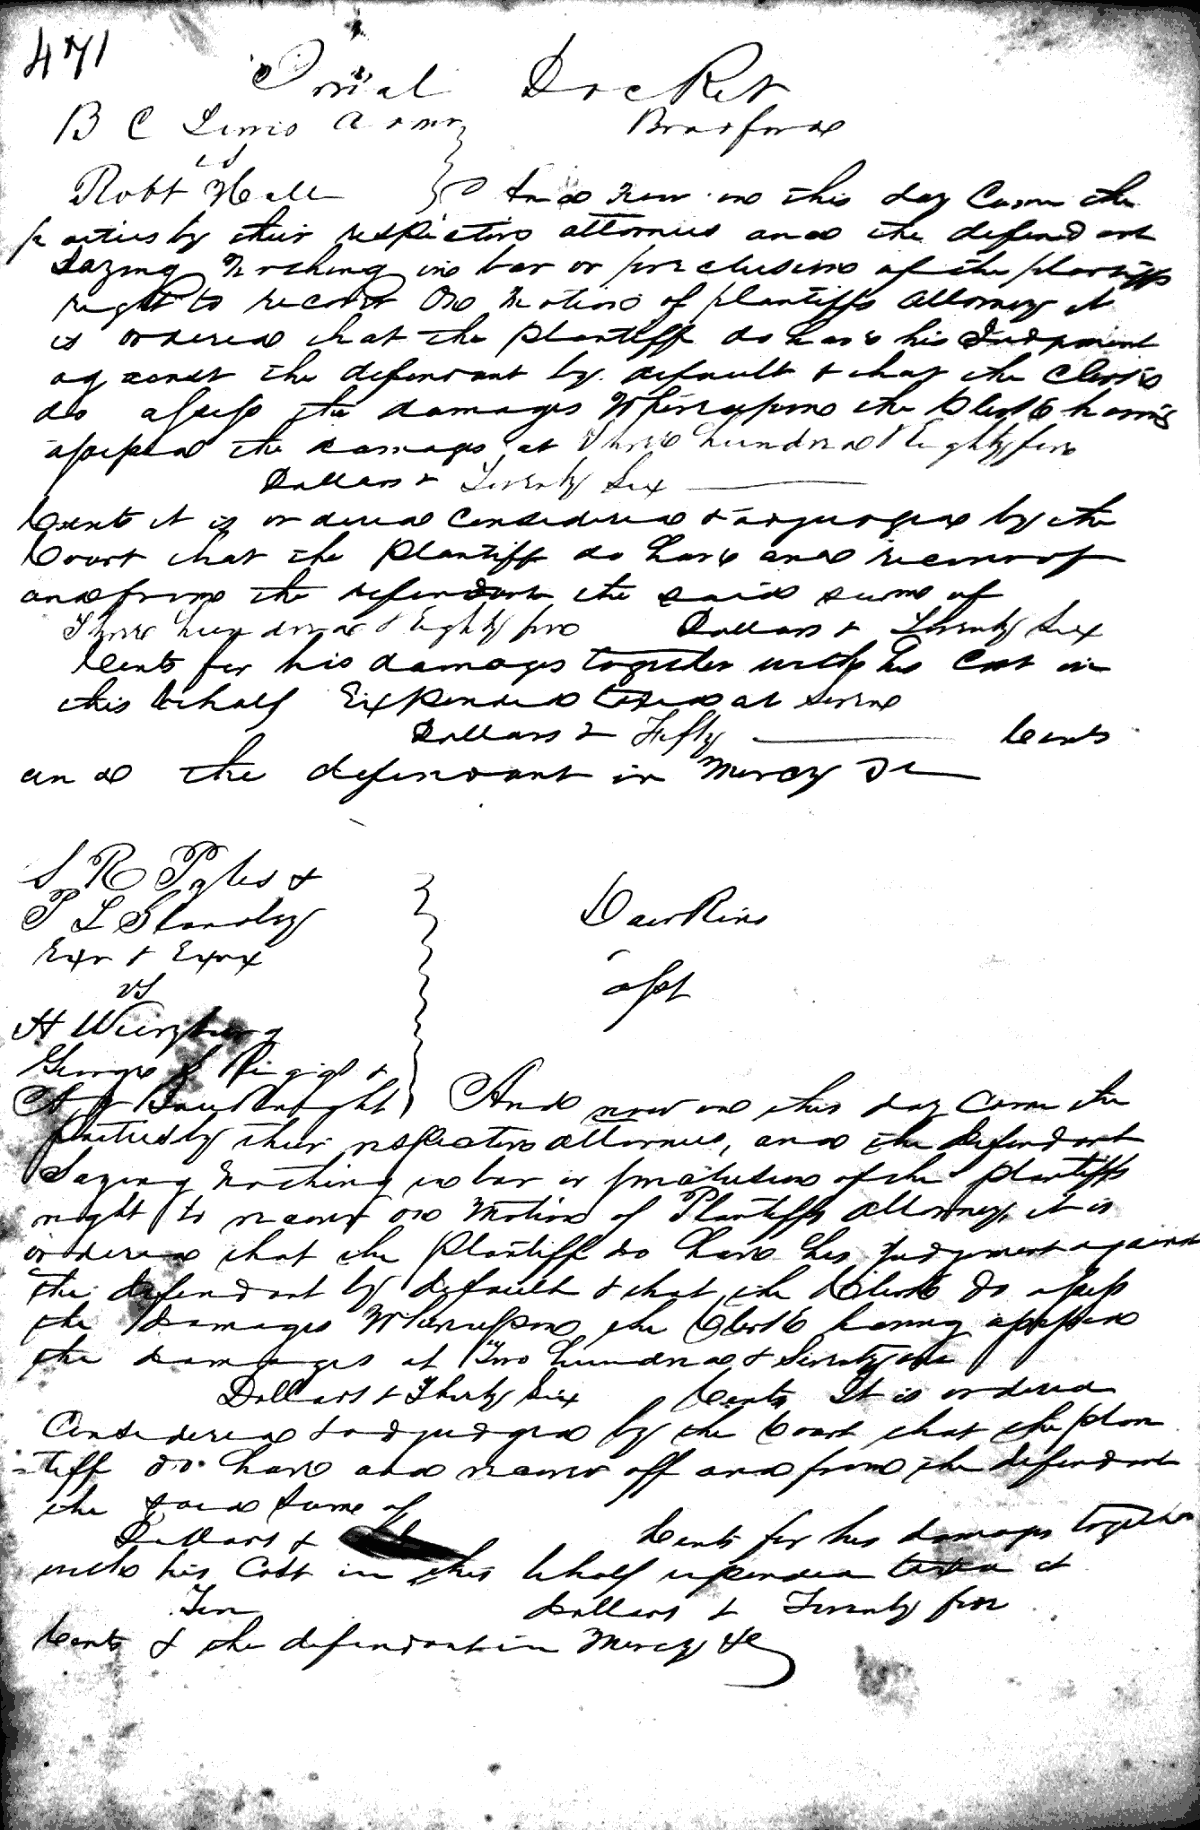 471
Trial Docket
B C Lewis Admr Bradford
vs
Robt Hall And now on this day Came the
parties by their respective attornies and the defendant
Saying Nothing in bar or preclusion of the plantiffs
right to recover On Motion of plantiffs attorney it
is ordered that the plantiff do have his Judgment
against the defendant by default & that the Clerk
do assess the damages Whereupon the Clerk having
assessed the damages at Three hundred & Eighty five
Dollars & Twenty Six
Cents it is ordered Considered & adjudged by the
Court that the plantiff do have and recover of
and from the defendant the said sum of
Three hundred & Eighty five Dollars & Twenty Six
Cents for his damages together with his Cost in
this behalf Expended taxed at Seven
Dollars & Fifty Cents
and the defendant in Mercy &c
S R Pyles &
P L Standley
Exr & Exrx Dawkins
vs asst
H Wurzburg
George &
And now on this day Came the
parties by their respective attornies, and the defendant
Saying Nothing in bar or preclusion of the plantiffs
right to recover on Motion of Plantiffs attorney, it is
ordered that the Plantiff do have his judgement against
the defendant by default & that the Clerk do assess
the Damages Whereupon the Clerk having assessed
the damages at Two hundred & Seventy one
Dollars & Thirty Six Cents It is ordered
Considered & adjudged by the Court that the plan
tiff do have and recover off and from the defendant
the said Sum of
Dollars & Cents for his damages together
with his Cost in this behalf expended taxed at
Ten Dollars & Twenty five
Cents & the defendant in Mercy &c